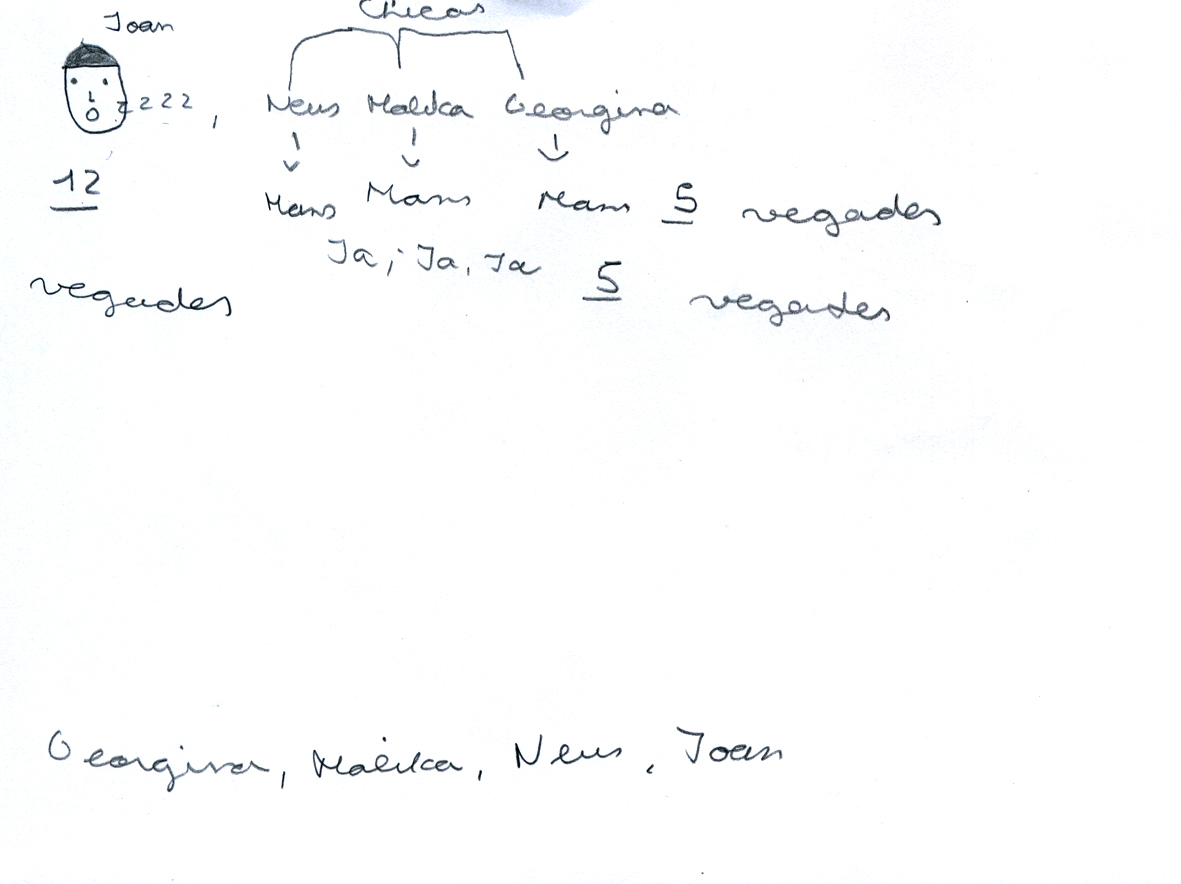 Joan Chicas
zzzz, Neus Malika Georgina
12 Mans Mans Mans 5 vegades
Ja, Ja, Ja 5 vegades
vegades
Georgina, Malika, Neus, Joan